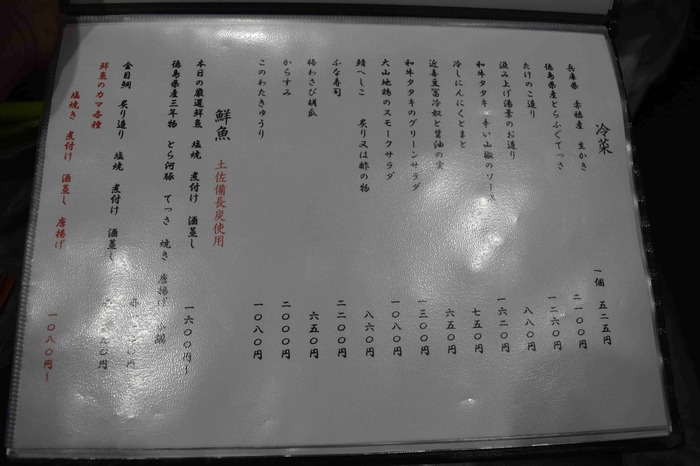 冷菜
兵庫県 赤穂産 生かき 一個 五二五円
徳島県産とらふぐてっさ 二一〇〇円
たけのこ造り 一二六〇円
汲み上げ湯葉のお造り 八八〇円
和牛タタキ 山椒のソース 一六二〇円
冷しにんにくとまと 七五〇円
近喜豆冨冷奴と醤油の実 六五〇円
和牛タタキのグリーンサラダ 一三〇〇円
大山地鶏のスモークサラダ 一〇八〇円
鯖へしこ 炙り又は酢の物 八六〇円
ふな寿司 二二〇〇円
わさび胡瓜 六五〇円
からすみ 二〇〇〇円
このわたきゅうり 一〇八〇円
鮮魚 土佐備長炭使用
本日の厳選鮮魚 塩焼 煮付け 酒蒸し 一六〇〇円〜
徳島県産三年物 とら河豚 てっさ 焼き 唐揚げ 小鍋
金目鯛 炙り造り 塩焼 煮付け 酒蒸し
鮮魚のカマ各種
塩焼き 煮付け 酒蒸し 唐揚げ 一〇八〇円〜